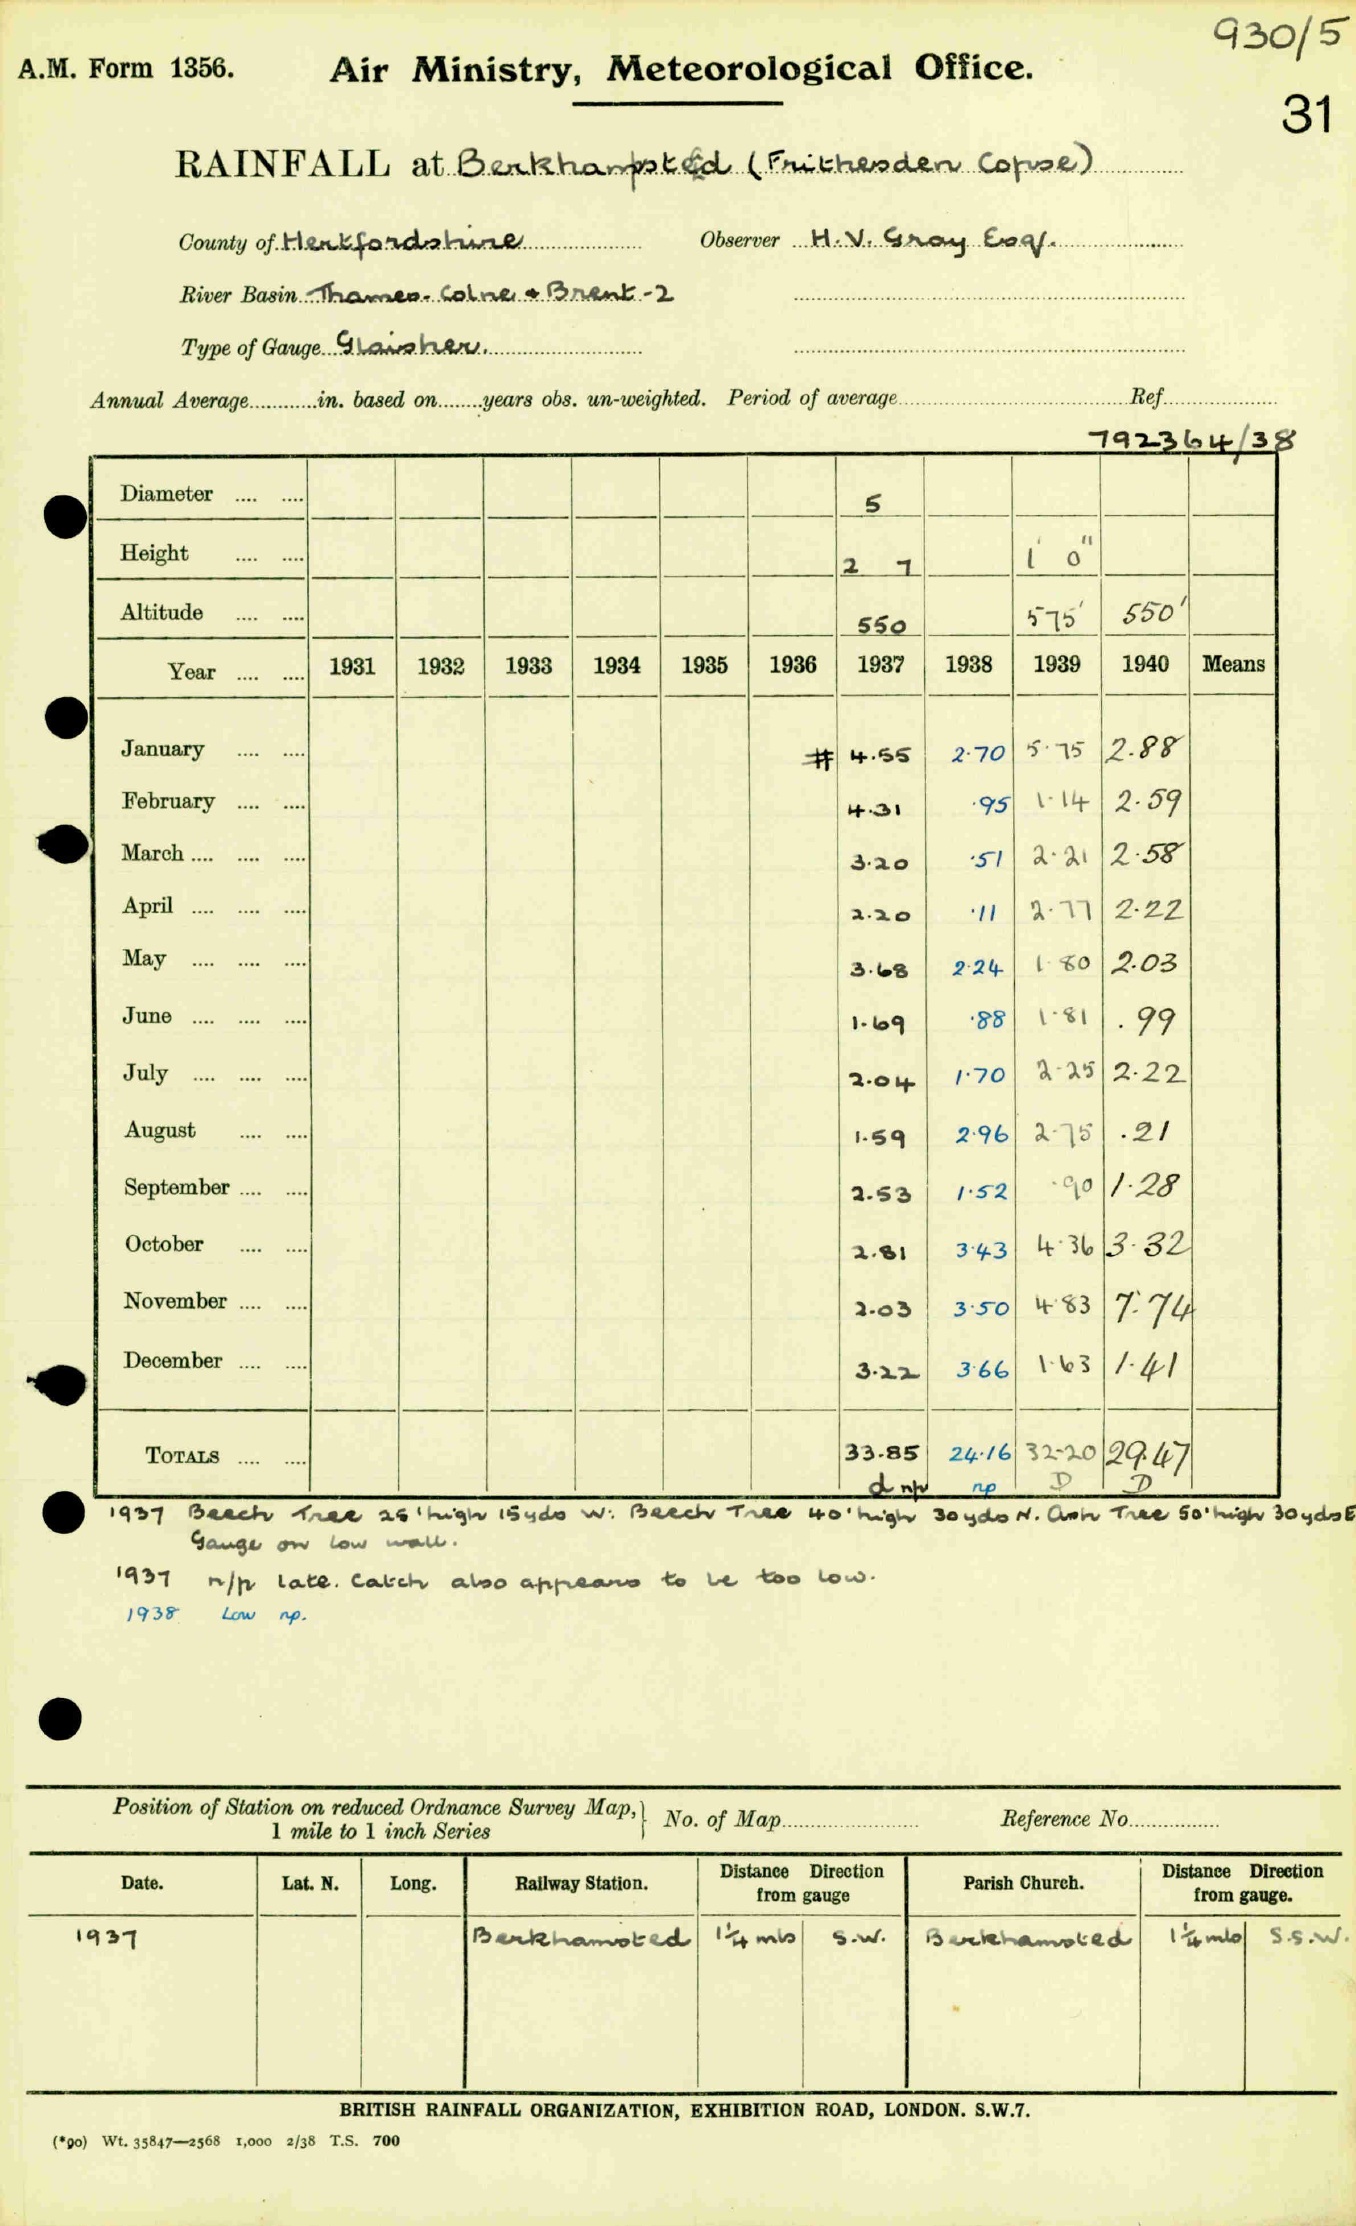 930/5
A.M. Form 1356. Air Ministry, Meteorological Office.
31
RAINFALL at Berkhampsted (Frithesden Copse)
County of Hertfordshire Observer H. V. Gray Esq.
River Basin Thames. Colne & Brent - 2
Type of Gauge Glaisher.
Annual Average............in. based on........years obs. un-weighted. Period of average.......... Ref..........
792364/38
Diameter .... .... 5
Height .... .... 2 7 1' 0"
Altitude .... .... 550 575' 550'
Year .... .... 1931 1932 1933 1934 1935 1936 1937 1938 1939 1940 Means
January .... .... # 4.55 2.70 5.75 2.88
February .... .... 4.31 .95 1.14 2.59
March .... .... .... 3.20 .51 2.21 2.58
April .... .... .... 2.20 .11 2.77 2.22
May .... .... .... 3.68 2.24 1.80 2.03
June .... .... .... 1.69 .88 1.81 .99
July .... .... .... 2.04 1.70 2.25 2.22
August .... .... 1.59 2.96 2.75 .21
September .... .... 2.53 1.52 .90 1.28
October .... .... 2.81 3.43 4.36 3.32
November .... .... 2.03 3.50 4.83 7.74
December .... .... 3.22 3.66 1.63 1.41
TOTALS .... .... 33.85 24.16 32.20 29.47
d n/p np D D
1937 Beech Tree 25' high 15yds W: Beech Tree 40' high 30yds N. Ash Tree 50' high 30yds E
Gauge on low wall.
1937 n/p late. Catch also appears to be too low.
1938 Low np.
Position of Station on reduced Ordnance Survey Map,
1 mile to 1 inch Series } No. of Map.......... Reference No..........
Date. Lat. N. Long. Railway Station. Distance Direction from gauge Parish Church. Distance Direction from gauge.
1937 Berkhamsted 1¼ mls S.W. Berkhamsted 1¼ mls S.S.W.
BRITISH RAINFALL ORGANIZATION, EXHIBITION ROAD, LONDON. S.W.7.
(*90) Wt. 35847—2568 1,000 2/38 T.S. 700